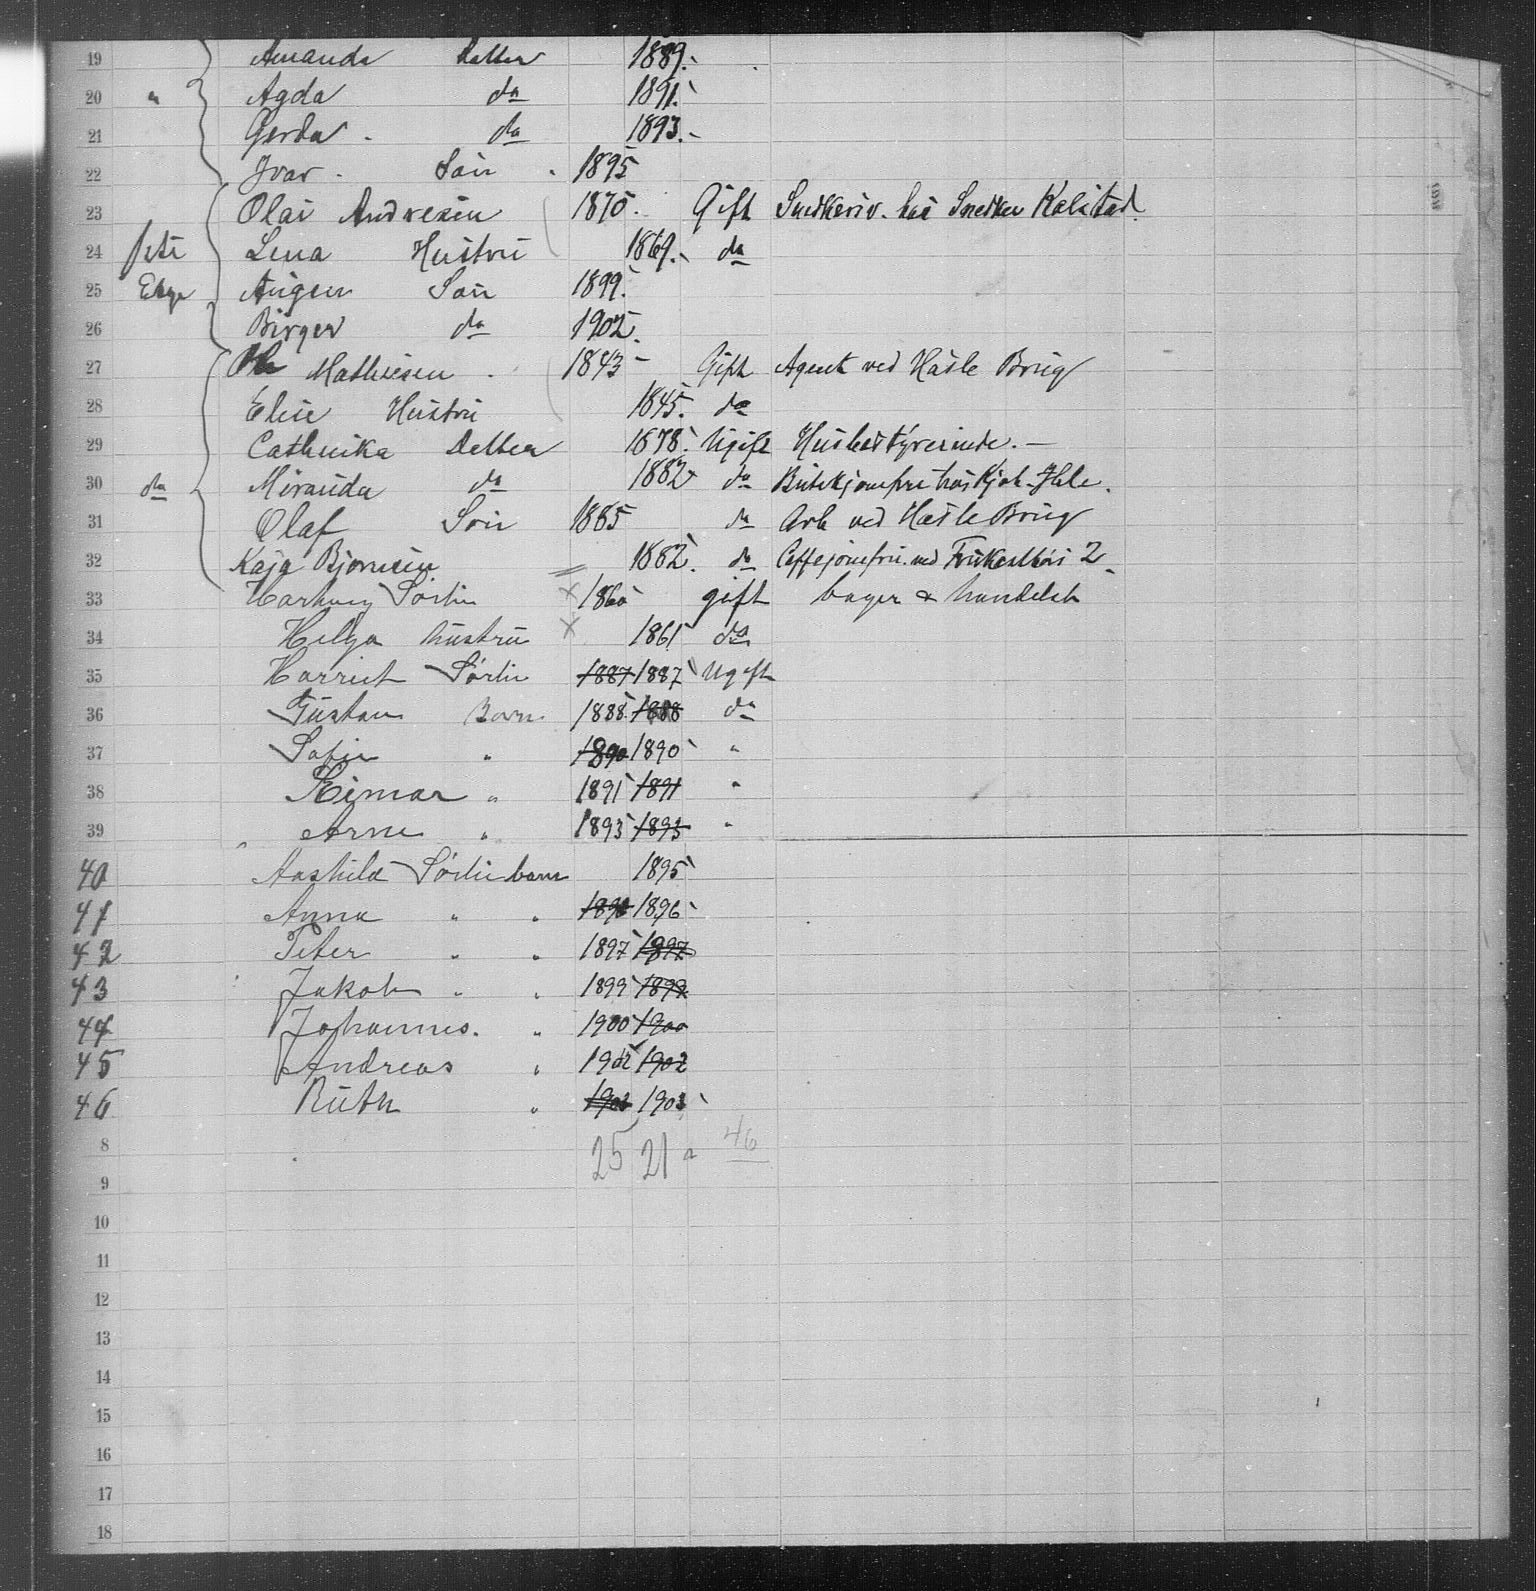 19 Amanda Datter 1889.
20 " Agda do 1891.
21 Gerda. do 1893.
22 Ivar. Søn. 1895
23 Olai Andresen 1870. Gift Snedkersv. hos Snedker Kalstad.
24 Lena Hustru 1869. do
25 Etage Søn 1899.
26 Birger do 1902.
27 Mathiesen. 1843 Gift Agent ved Hasle Brug
28 Elise Hustru 1845. do
29 Cathinka Datter 1878. Ugift Husbestyrerinde.
30 do Miranda do 1882 do Butikjomfru hos
31 Olaf Søn 1885 do Arb ved Hasle Brug
32 Kaja Bjornsen 1882. do Caffejomfru. ved 2
33 Hartwig Sørlie × 1860 gift bager & handelsb
34 Helga hustru × 1861 do
35 Harriet Sørlie 1887 1887 Ugift
36 Gustav Barn 1888 1888 do
37 Sofie " 1890 1890 "
38 " 1891 1891 "
39 Arne " 1893 1893 "
40 Aashild Sørlie barn 1895
41 Anna " " 1896 1896
42 Peter " " 1897 1897
43 Jakob " " 1899 1899
44 Johannes. " 1900 1900
45 Andreas " 1902 1902
46 Ruth " 1903 1903
8 25 21 = 46
9
10
11
12
13
14
15
16
17
18